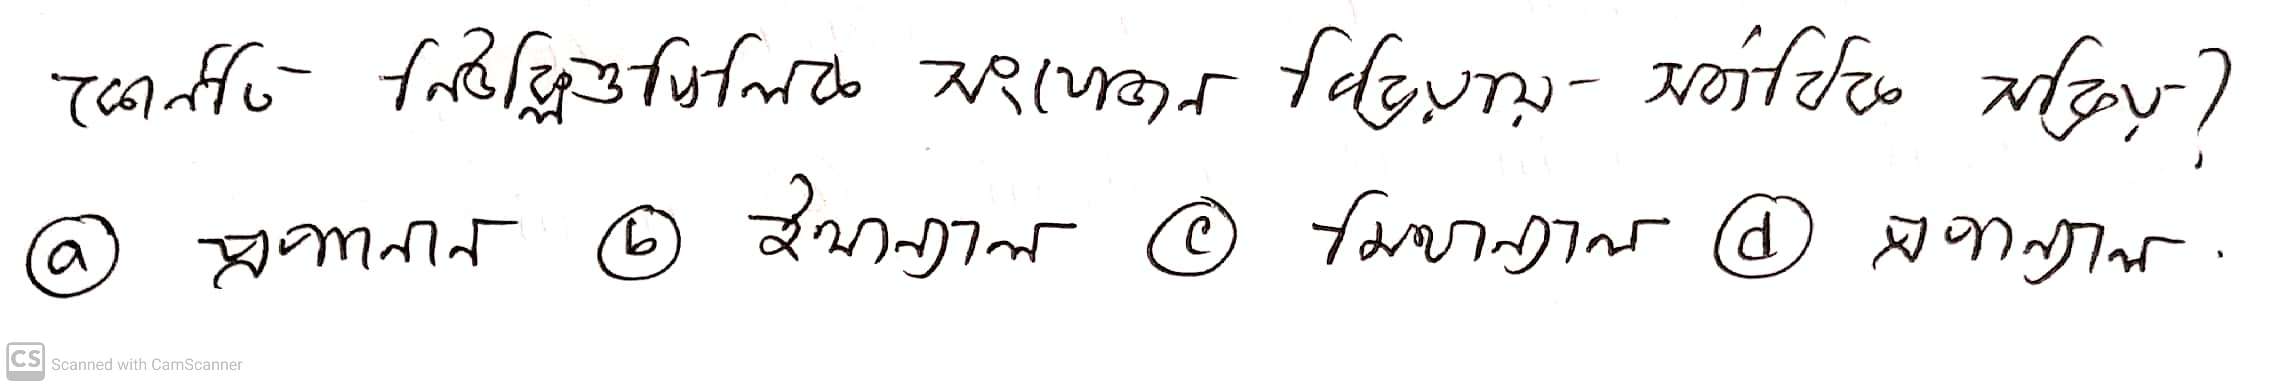 কোনটি নিউক্লিওফিলিক সংযোজন বিক্রিয়ায় সর্বাধিক সক্রিয়?
ⓐ প্রপানোন ⓑ ইথান্যাল ⓒ মিথান্যাল ⓓ প্রপান্যাল.
CS Scanned with CamScanner